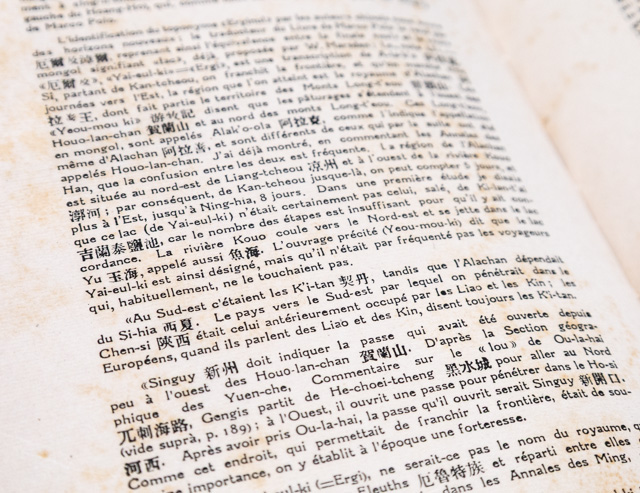 gauche du Hoang-Ho, qui,
de Marco Polo.
L'identification du toponyme «Erginul» par les auteurs
des horizons nouveaux: le traducteur du Livre de Marco Polo
厄爾 reprenant ainsi l'équivalence
mongol signifiant «lac», déjà proposée par W.
«Yai-eul-ki»=«Ergi», est une transcription de
Si, partant de Kan-tcheou, on franchit la frontière, et
journées vers l'Est, la région que l'on atteint est le royaume
王, dont fait partie le territoire des Monts Long-
«Yeou-mou ki» 游牧記 disent que les pâturages s'étendent
Houo-lan-chan 賀蘭山 et au nord des monts Long-t'eou. Ces
en mongol, sont appelés Alak'o-ola 阿拉 comme l'indique l'appellation
même d'Alachan 阿拉善, et sont différents de ceux qui par la suite ont été
appelés Houo-lan-chan. J'ai déjà montré, en commentant les Annales des
Han, que la confusion entre les deux est fréquente. La région de l'Alachan
est située au nord-est de Liang-tcheou 凉州 et à l'ouest de la rivière Kouo
漷河; par conséquent, de Kan-tcheou jusque-là, on peut compter 5 jours, et
plus à l'Est, jusqu'à Ning-hia, 8 jours. Dans une première étude je disais
que ce lac (de Yai-eul-ki) n'était certainement pas celui, salé, de Ki-lan-t'ai
吉蘭泰鹽池, car le nombre des étapes est insuffisant pour qu'il y ait con-
cordance. La rivière Kouo coule vers le Nord-est et se jette dans le lac
Yu 玉海, appelé aussi 魚海. L'ouvrage précité (Yeou-mou-ki) dit que le lac
Yai-eul-ki est ainsi désigné, mais qu'il n'était par fréquenté pas les voyageurs
qui, habituellement, ne le touchaient pas.
«Au Sud-est c'étaient les K'i-tan 契丹, tandis que l'Alachan dépendait
du Si-hia 西夏. Le pays vers le Sud-est par lequel on pénétrait dans le
Chen-si 陝西 était celui antérieurement occupé par les Liao et les Kin; les
Européens, quand ils parlent des Liao et des Kin, disent toujours les K'i-tan.
«Singuy 新州 doit indiquer la passe qui avait été ouverte depuis
peu à l'ouest des Houo-lan-chan 賀蘭山. D'après la Section géogra-
phique des Yuen-che, Commentaire sur le «lou» de Ou-la-hai
兀剌海路, Gengis partit de He-choei-tcheng 黑水城 pour aller au Nord
(vide suprà, p. 189); à l'Ouest, il ouvrit une passe pour pénétrer dans le Ho-si
河西. Après avoir pris Ou-la-hai, la passe qu'il ouvrit serait Singuy 新開口.
Comme cet endroit, qui permettait de franchir la frontière, était de sou-
veraine importance, on y établit à l'époque une forteresse.
eul-ki (=Ergi), ne serait-ce pas le nom du royaume,
Eleuths 厄魯特族 et réparti entre elles
dans les Annales des Ming,